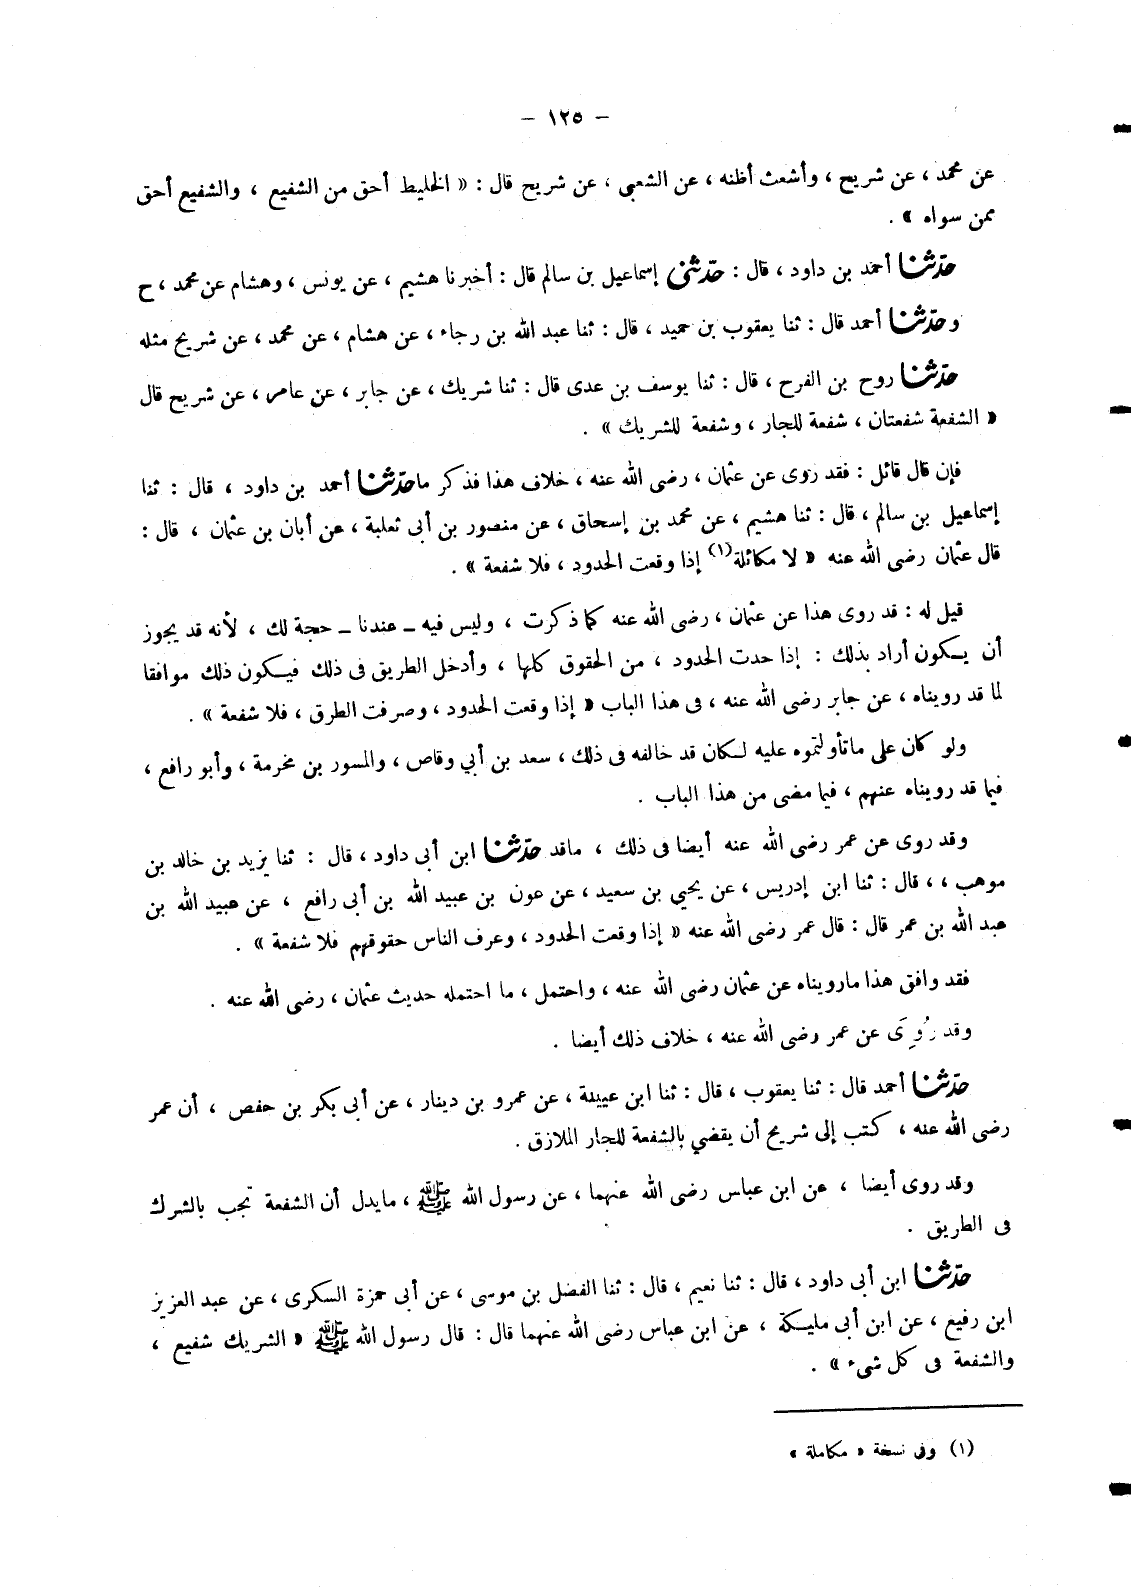 – ١٢٥ –
عن محمد ، عن شريح ، وأشعث أظنه ، عن الشعبي ، عن شريح قال : « الخليط أحق من الشفيع ، والشفيع أحق
ممن سواه » .
حدّثنا أحمد بن داود ، قال : حدّثني إسماعيل بن سالم قال : أخبرنا هشيم ، عن يونس ، وهشام عن محمد ، ح
وحدّثنا أحمد قال : ثنا يعقوب بن حميد ، قال : ثنا عبد الله بن رجاء ، عن هشام ، عن محمد ، عن شريح مثله
حدّثنا روح بن الفرح ، قال : ثنا يوسف بن عدى قال : ثنا شريك ، عن جابر ، عن عامر ، عن شريح قال
« الشفعة شفعتان ، شفعة للجار ، وشفعة للشريك » .
فإن قال قائل : فقد روى عن عثمان ، رضى الله عنه ، خلاف هذا فذكر ماحدّثنا أحمد بن داود ، قال : ثنا
إسماعيل بن سالم ، قال : ثنا هشيم ، عن محمد بن إسحاق ، عن منصور بن أبى ثعلبة ، عن أبان بن عثمان ، قال :
قال عثمان رضى الله عنه « لا مكائلة(١) إذا وقعت الحدود ، فلا شفعة » .
قيل له : قد روى هذا عن عثمان ، رضى الله عنه كما ذكرت ، وليس فيه ـ عندنا ـ حجة لك ، لأنه قد يجوز
أن يكون أراد بذلك : إذا حدت الحدود ، من الحقوق كلها ، وأدخل الطريق فى ذلك فيكون ذلك موافقا
لما قد رويناه ، عن جابر رضى الله عنه ، فى هذا الباب « إذا وقعت الحدود ، وصرفت الطرق ، فلا شفعة » .
ولو كان على ماتأولتموه عليه لكان قد خالفه فى ذلك ، سعد بن أبي وقاص ، والمسور بن مخرمة ، وأبو رافع ،
فيما قد رويناه عنهم ، فيما مضى من هذا الباب .
وقد روى عن عمر رضى الله عنه أيضا فى ذلك ، ماقد حدّثنا ابن أبى داود ، قال : ثنا يزيد بن خالد بن
موهب ، ، قال : ثنا ابن إدريس ، عن يحيي بن سعيد ، عن عون بن عبيد الله بن أبى رافع ، عن عبيد الله بن
عبد الله بن عمر قال : قال عمر رضى الله عنه « إذا وقعت الحدود ، وعرف الناس حقوقهم فلا شفعة » .
فقد وافق هذا مارويناه عن عثمان رضى الله عنه ، واحتمل ، ما احتمله حديث عثمان ، رضى الله عنه .
وقد رُوِىَ عن عمر رضى الله عنه ، خلاف ذلك أيضا .
حدّثنا أحمد قال : ثنا يعقوب ، قال : ثنا ابن عيينة ، عن عمرو بن دينار ، عن أبى بكر بن حفص ، أن عمر
رضى الله عنه ، كتب إلى شريح أن يقضي بالشفعة للجار الملازق .
وقد روى أيضا ، عن ابن عباس رضى الله عنهما ، عن رسول الله ﷺ ، مايدل أن الشفعة تجب بالشرك
فى الطريق .
حدّثنا ابن أبى داود ، قال : ثنا نعيم ، قال : ثنا الفضل بن موسى ، عن أبى حمزة السكرى ، عن عبد العزيز
ابن رفيع ، عن ابن أبى مليكة ، عن ابن عباس رضى الله عنهما قال : قال رسول الله ﷺ « الشريك شفيع ،
والشفعة فى كل شىء » .
(١) وفى نسخة « مكاملة »